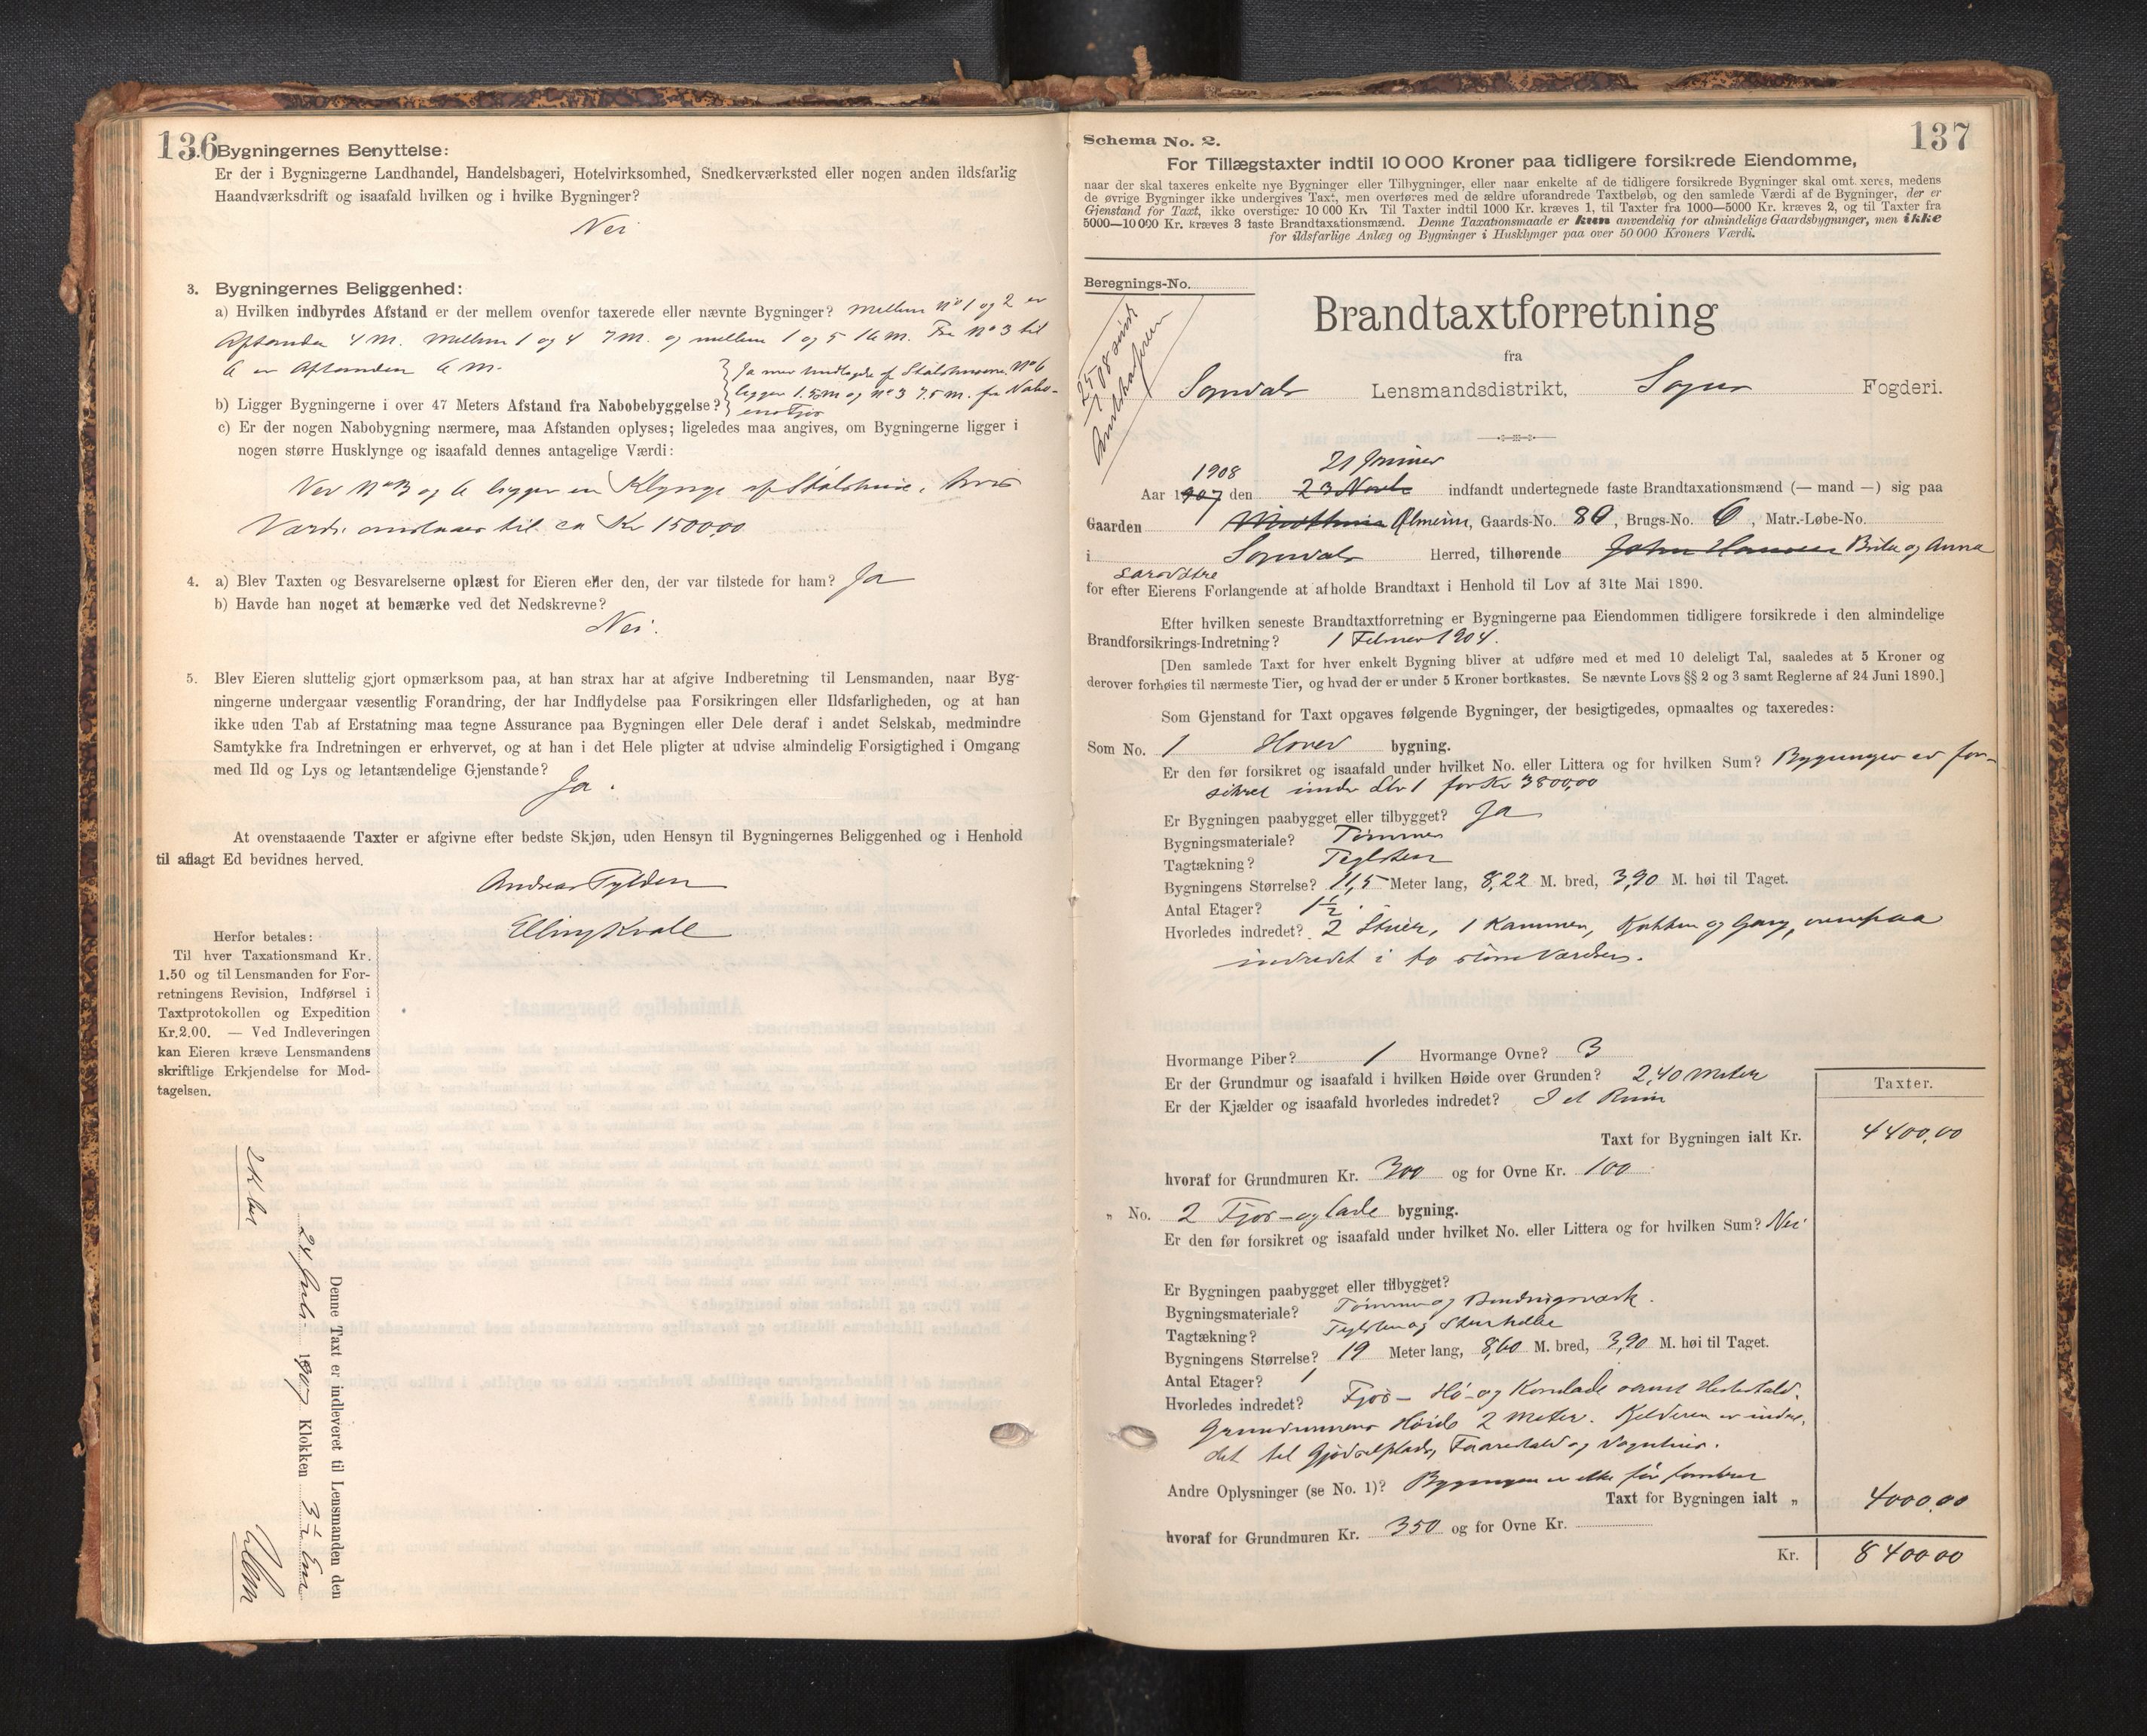 136
Bygningernes Benyttelse:
Er der i Bygningerne Landhandel, Handelsbageri, Hotelvirksomhed, Snedkerværksted eller nogen anden ildsfarlig
Haandværksdrift og isaafald hvilken og i hvilke Bygninger?
Nei
3. Bygningernes Beliggenhed:
a) Hvilken indbyrdes Afstand er der mellem ovenfor taxerede eller nævnte Bygninger? Mellem No 1 og 2 er
Afstanden 4 M. Mellem 1 og 4 7 M. og mellem 1 og 5 16 M. Fra No 3 til
6 er Afstanden 6 M.
b) Ligger Bygningerne i over 47 Meters Afstand fra Nabobebyggelse? Ja med Undtagelse af Stølshusene. No 6
ligger 1.5 M og No 3 7.5 M. fra Nabo-
c) Er der nogen Nabobygning nærmere, maa Afstanden oplyses; ligeledes maa angives, om Bygningerne ligger i
nogen større Husklynge og isaafald dennes antagelige Værdi:
Ved No 3 og 6 ligger en Klynge af Stølshuse, hvis
Værdi ansluaes til ca Kr 1500,00
4. a) Blev Taxten og Besvarelserne oplæst for Eieren eller den, der var tilstede for ham? Ja
b) Havde han noget at bemærke ved det Nedskrevne?
Nei.
5. Blev Eieren sluttelig gjort opmærksom paa, at han strax har at afgive Indberetning til Lensmanden, naar Byg-
ningerne undergaar væsentlig Forandring, der har Indflydelse paa Forsikringen eller Ildsfarligheden, og at han
ikke uden Tab af Erstatning maa tegne Assurance paa Bygningen eller Dele deraf i andet Selskab, medmindre
Samtykke fra Indretningen er erhvervet, og at han i det Hele pligter at udvise almindelig Forsigtighed i Omgang
med Ild og Lys og letantændelige Gjenstande?
Ja.
At ovenstaaende Taxter er afgivne efter bedste Skjøn, uden Hensyn til Bygningernes Beliggenhed og i Henhold
til aflagt Ed bevidnes herved.
Andreas Tylden
Elling Kvale
Herfor betales:
Til hver Taxationsmand Kr.
1.50 og til Lensmanden for For-
retningens Revision, Indførsel i
Taxtprotokollen og Expedition
Kr.2.00. — Ved Indleveringen
kan Eieren kræve Lensmandens
skriftlige Erkjendelse for Mod-
tagelsen.
Denne Taxt er indleveret til Lensmanden den
24 1907 Klokken 3 1/2 Em
137
Schema No. 2.
For Tillægstaxter indtil 10 000 Kroner paa tidligere forsikrede Eiendomme,
naar der skal taxeres enkelte nye Bygninger eller Tilbygninger, eller naar enkelte af de tidligere forsikrede Bygninger skal omtaxeres, medens
de øvrige Bygninger ikke undergives Taxt, men overføres med de ældre uforandrede Taxtbeløb, og den samlede Værdi af de Bygninger, der er
Gjenstand for Taxt, ikke overstiger 10 000 Kr. Til Taxter indtil 1000 Kr. kræves 1, til Taxter fra 1000—5000 Kr. kræves 2, og til Taxter fra
5000—10 000 Kr. kræves 3 faste Brandtaxationsmænd. Denne Taxationsmaade er kun anvendelig for almindelige Gaardsbygninger, men ikke
for ildsfarlige Anlæg og Bygninger i Husklynger paa over 50 000 Kroners Værdi.
Beregnings-No.
Brandtaxtforretning
fra
Sogndal Lensmandsdistrikt, Sogns Fogderi.
1908 21 Januar
Aar 1907 den 23 Novbr indfandt undertegnede faste Brandtaxationsmænd (— mand —) sig paa
Gaarden Ølmeim, Gaards-No. 80, Brugs-No. 6, Matr.-Løbe-No.
i Sogndal Herred, tilhørende John Hansen Brita og Anna
for efter Eierens Forlangende at afholde Brandtaxt i Henhold til Lov af 31te Mai 1890.
Efter hvilken seneste Brandtaxtforretning er Bygningerne paa Eiendommen tidligere forsikrede i den almindelige
Brandforsikrings-Indretning? 1 Februar 1904.
[Den samlede Taxt for hver enkelt Bygning bliver at udføre med et med 10 deleligt Tal, saaledes at 5 Kroner og
derover forhøies til nærmeste Tier, og hvad der er under 5 Kroner bortkastes. Se nævnte Lovs §§ 2 og 3 samt Reglerne af 24 Juni 1890.]
Som Gjenstand for Taxt opgaves følgende Bygninger, der besigtigedes, opmaaltes og taxeredes:
Som No. 1 Hoved bygning.
Er den før forsikret og isaafald under hvilket No. eller Littera og for hvilken Sum? Bygningen er for-
sikret under Litr 1 for Kr 3800,00
Er Bygningen paabygget eller tilbygget? Ja
Bygningsmateriale? Tømmer
Tagtækning? Teglsten
Bygningens Størrelse? 11,5 Meter lang, 8,22 M. bred, 3,90 M. høi til Taget.
Antal Etager? 1 1/2.
Hvorledes indredet? 2 Stuer, 1 Kammer, Kjøkken og Gang, ovenpaa
indredet i to større Værelser.
Hvormange Piber? 1 Hvormange Ovne? 3
Er der Grundmur og isaafald i hvilken Høide over Grunden? 2,40 Meter
Er der Kjælder og isaafald hvorledes indredet? I et Rum
Taxter.
Taxt for Bygningen ialt Kr. 4400,00
hvoraf for Grundmuren Kr. 300 og for Ovne Kr. 100
" No. 2 Fjøs- og Lade bygning.
Er den før forsikret og isaafald under hvilket No. eller Littera og for hvilken Sum? Nei
Er Bygningen paabygget eller tilbygget?
Bygningsmateriale? Tømmer og Bindingsværk.
Tagtækning? Teglsten og Stenheller
Bygningens Størrelse? 19 Meter lang, 8,60 M. bred, 3,90 M. høi til Taget.
Antal Etager? 1
Hvorledes indredet? Fjøs- Hø- og Kornlade samt Hestestald.
Grundmurens Høide 2 Meter. Kjelderen er indre-
det til Gjødselplads, Faarestald og Vognhus.
Andre Oplysninger (se No. 1)? Bygningen er ikke før
Taxt for Bygningen ialt " 4000,00
hvoraf for Grundmuren Kr. 350 og for Ovne Kr.
Kr. 8400 00